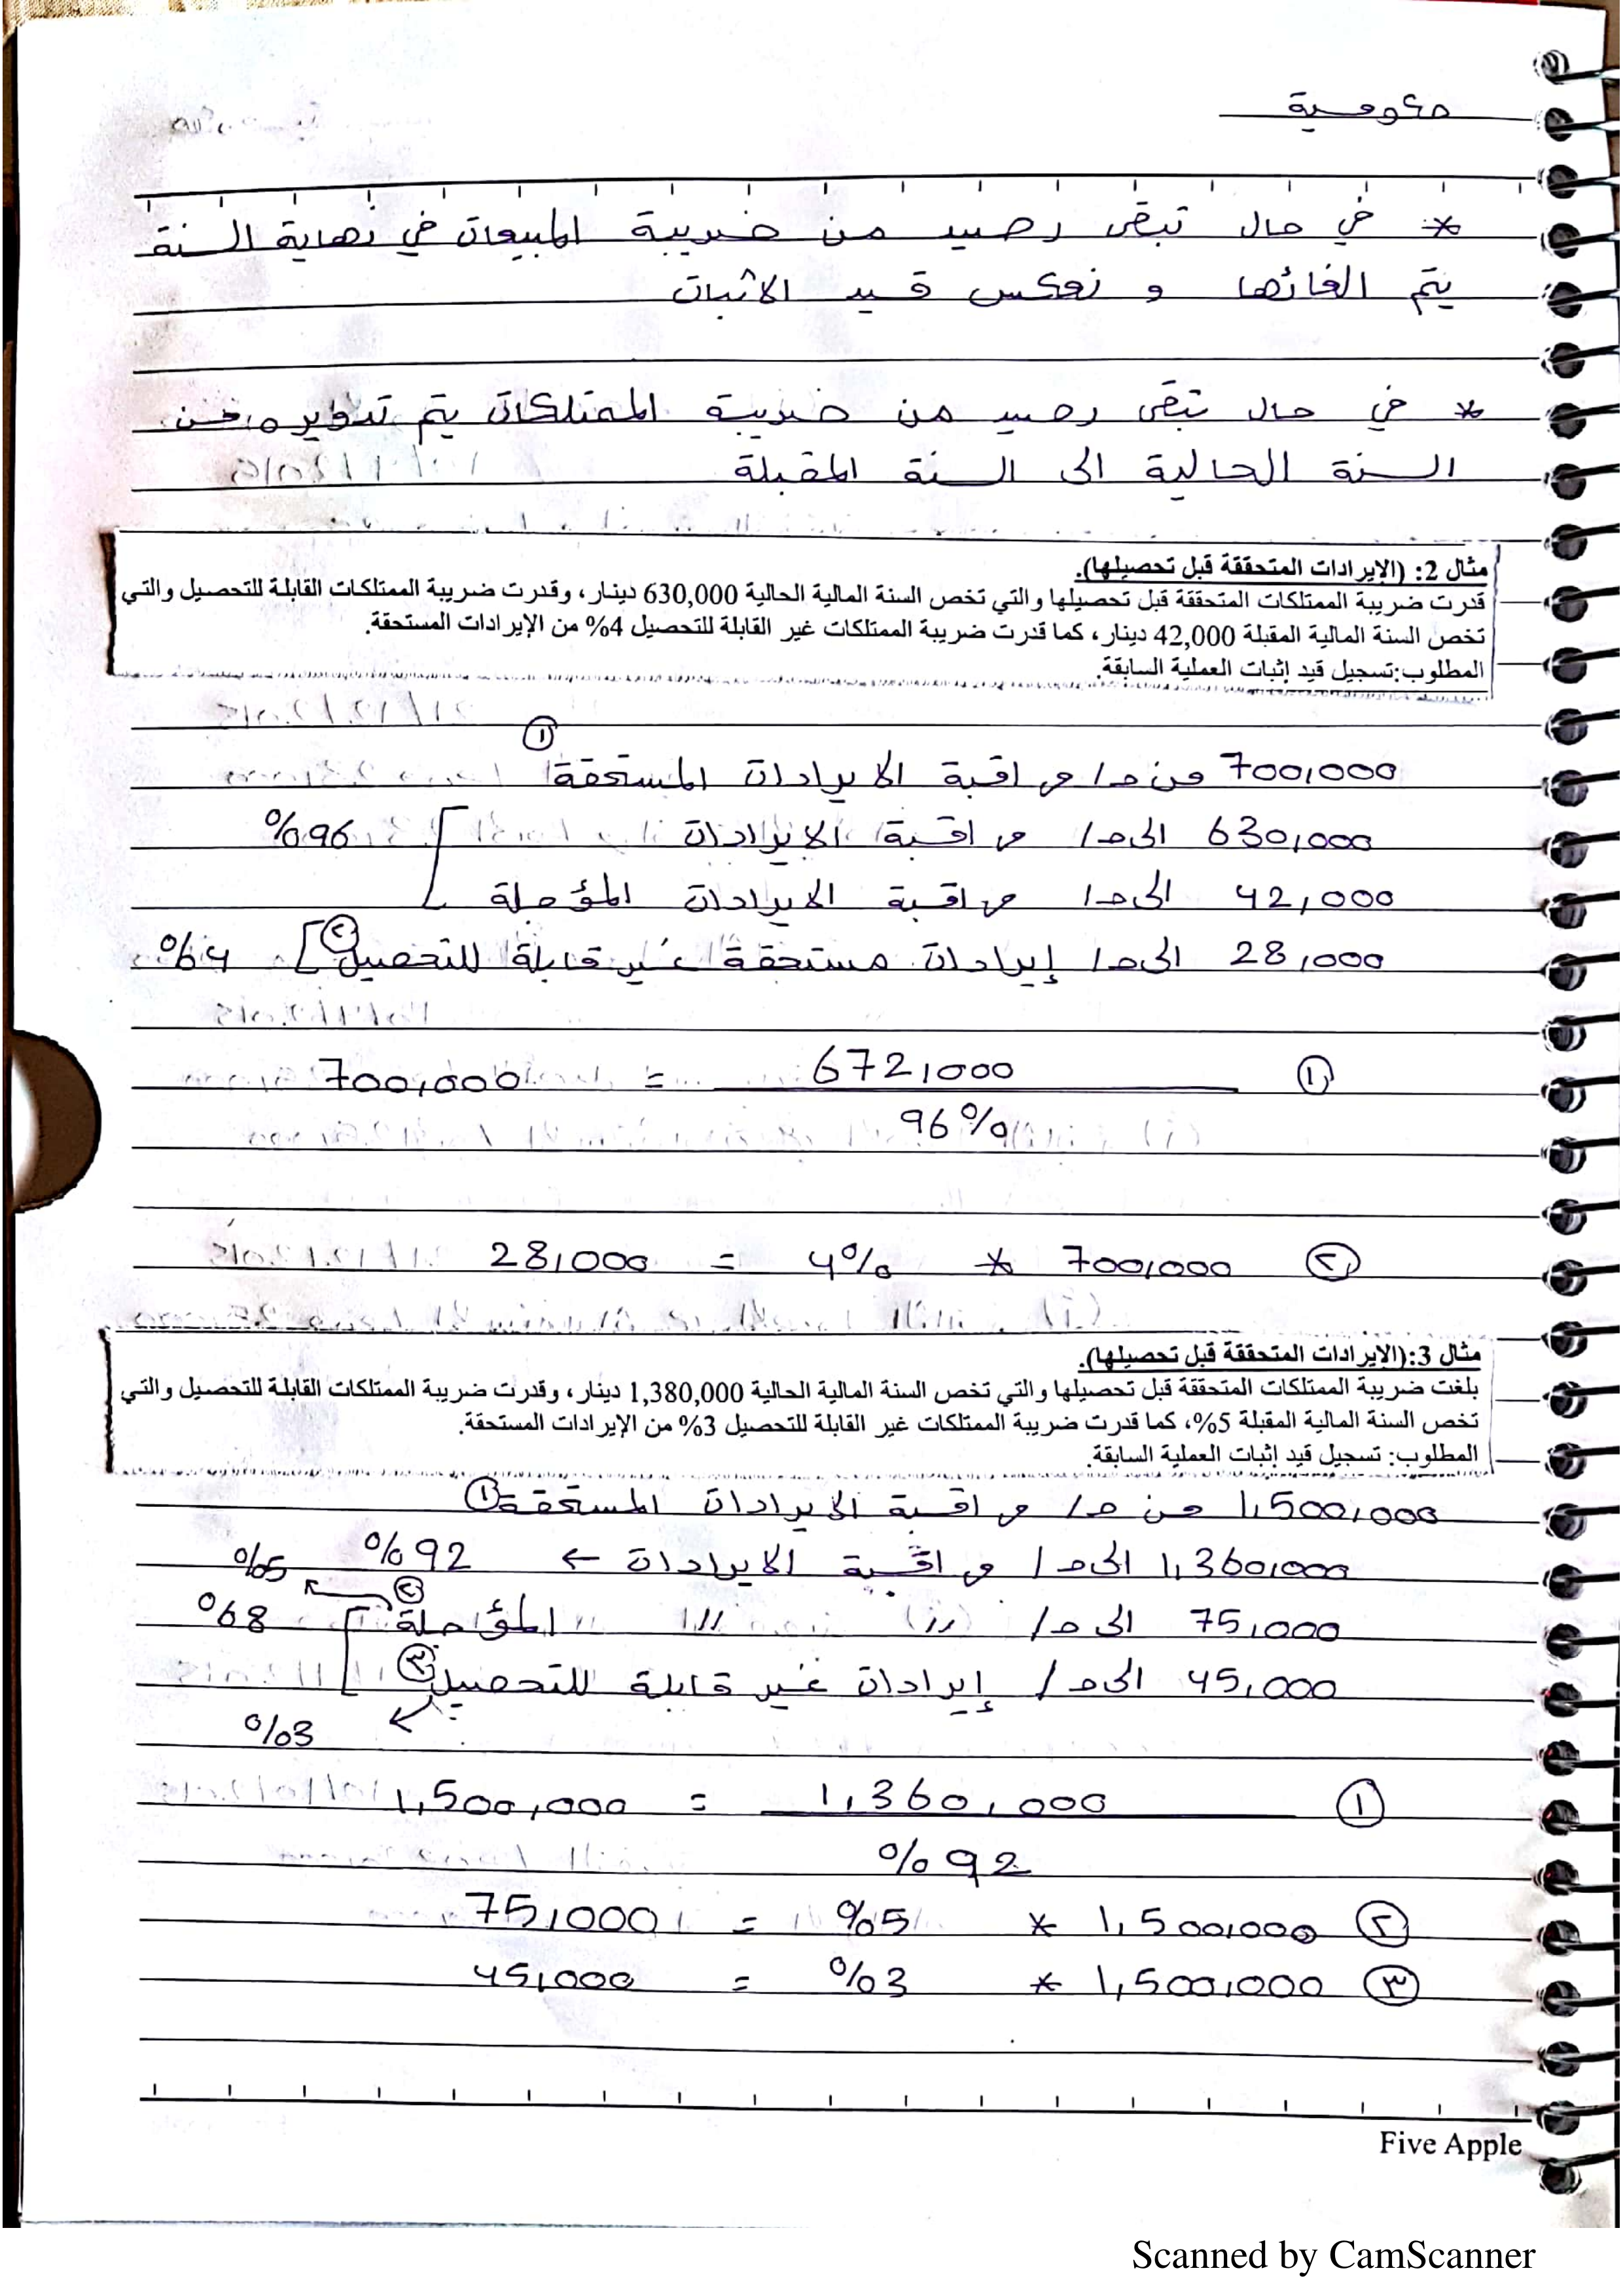 حكومية
* في حال تبقى رصيد من ضريبة المبيعات في نهاية السنة
يتم الغائها و نعكس قيد الاثبات
* في حال تبقى رصيد من ضريبة الممتلكات يتم تدويره من
السنة الحالية الى السنة المقبلة
مثال 2: (الإيرادات المتحققة قبل تحصيلها).
قدرت ضريبة الممتلكات المتحققة قبل تحصيلها والتي تخص السنة المالية الحالية 630,000 دينار، وقدرت ضريبة الممتلكات القابلة للتحصيل والتي
تخص السنة المالية المقبلة 42,000 دينار، كما قدرت ضريبة الممتلكات غير القابلة للتحصيل 4% من الإيرادات المستحقة.
المطلوب:تسجيل قيد إثبات العملية السابقة.
700,000 من ح/ مراقبة الايرادات المستحقة ①
630,000 الى ح/ مراقبة الايرادات %96
42,000 الى ح/ مراقبة الايرادات المؤجلة
28,000 الى ح/ إيرادات مستحقة غير قابلة للتحصيل ② %4
① 672,000 = 700,000
96%
② 700,000 * 4% = 28,000
مثال 3:(الإيرادات المتحققة قبل تحصيلها).
بلغت ضريبة الممتلكات المتحققة قبل تحصيلها والتي تخص السنة المالية الحالية 1,380,000 دينار، وقدرت ضريبة الممتلكات القابلة للتحصيل والتي
تخص السنة المالية المقبلة 5%، كما قدرت ضريبة الممتلكات غير القابلة للتحصيل 3% من الإيرادات المستحقة.
المطلوب: تسجيل قيد إثبات العملية السابقة.
1,500,000 من ح/ مراقبة الايرادات المستحقة ①
1,360,000 الى ح/ مراقبة الايرادات ← %92 %5
75,000 الى ح/ // // المؤجلة ② %8
45,000 الى ح/ إيرادات غير قابلة للتحصيل ③
%3
① 1,360,000 = 1,500,000
%92
② 1,500,000 * %5 = 75,000
③ 1,500,000 * %3 = 45,000
Five Apple
Scanned by CamScanner